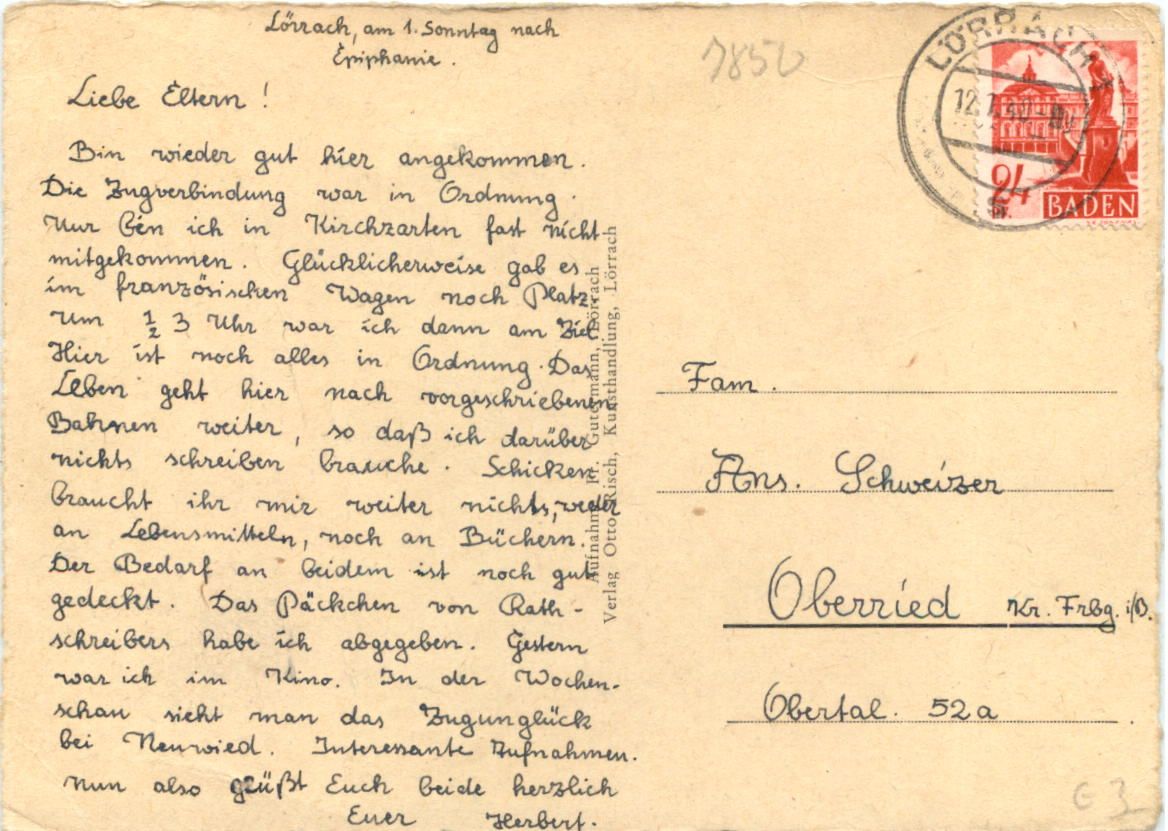 Lörrach, am 1. Sonntag nach
Epiphanie.
Liebe Eltern!
Bin wieder gut hier angekommen.
Die Zugverbindung war in Ordnung.
Nur bin ich in Kirchzarten fast nicht
mitgekommen. Glücklicherweise gab es
im französischen Wagen noch Platz.
Um 1/2 3 Uhr war ich dann am Ziel.
Hier ist noch alles in Ordnung. Das
Leben geht hier nach vorgeschriebenen
Bahnen weiter, so daß ich darüber
nichts schreiben brauche. Schicken
braucht ihr mir weiter nichts, weder
an Lebensmitteln, noch an Büchern.
Der Bedarf an beidem ist noch gut
gedeckt. Das Päckchen von Rath-
schreibers habe ich abgegeben. Gestern
war ich im Kino. In der Wochen-
schau sieht man das Zugunglück
bei Neuwied. Interessante Aufnahmen.
Nun also grüßt Euch beide herzlich
Euer Herbert.
Aufnahme Fr. Gutermann, Lörrach
Verlag Otto Risch, Kunsthandlung, Lörrach
7850
LÖRRACH
12.1.
24
BADEN
Fam.
Ans. Schweizer
Oberried Kr. Frbg. i/B.
Obertal. 52a
G 3